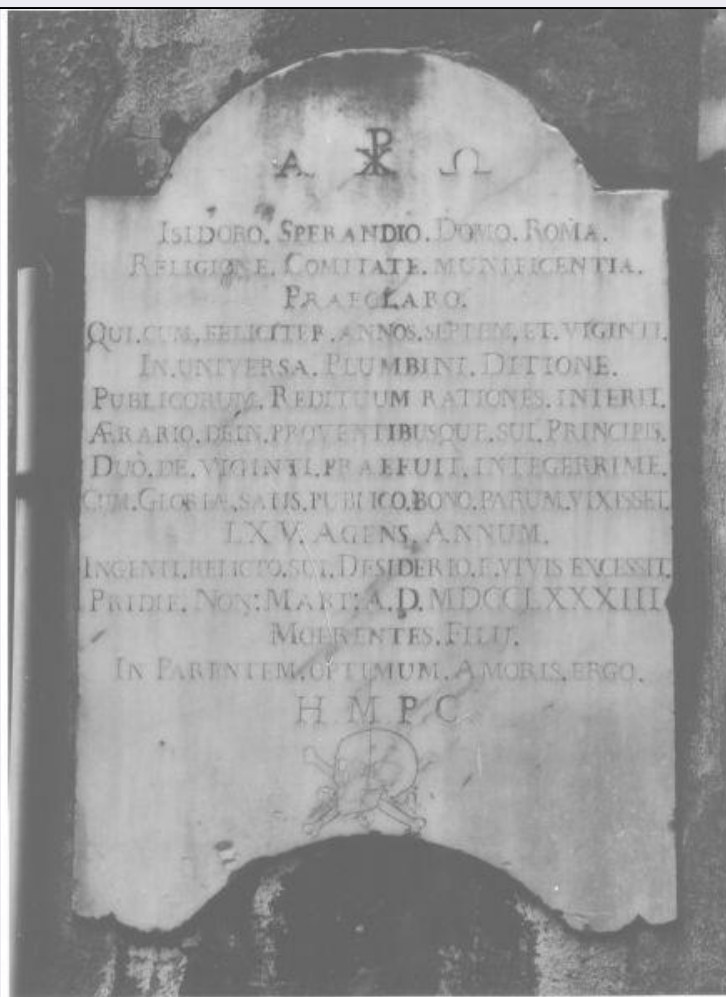 A ☧ Ω
ISIDORO. SPERANDIO. DOMO. ROMA.
RELIGIONE. COMITATE. MUNIFICENTIA.
PRAECLARO.
QUI. CUM. FELICITER. ANNOS. SEPTEM. ET. VIGINTI.
IN. UNIVERSA. PLUMBINI. DITIONE.
PUBLICORUM. REDITUUM RATIONES. INIERIT.
ÆRARIO. DEIN. PROVENTIBUSQUE. SUI. PRINCIPIS.
DUO. DE. VIGINTI. PRAEFUIT. INTEGERRIME.
CUM. GLORIÆ. SATIS. PUBLICO. BONO. PARUM. VIXISSET.
LXV. AGENS. ANNUM.
INGENTI. RELICTO. SUI. DESIDERIO. E. VIVIS EXCESSIT.
PRIDIE. NON: MART: A. D. MDCCLXXXIII
MOERENTES. FILII.
IN PARENTEM. OPTIMUM. AMORIS. ERGO.
H M P C